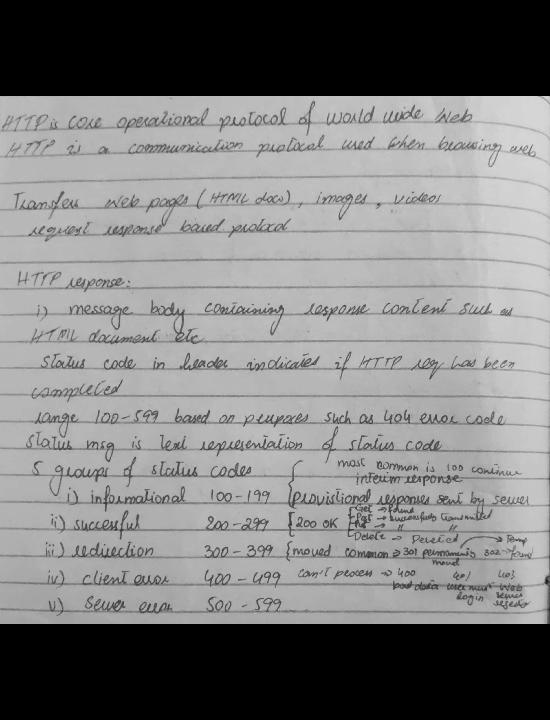 HTTP is core operational protocol of world wide Web
HTTP is a communication protocol used when browsing web
Transfers web pages (HTML docs), images, videos
request response based protocol
HTTP response:
i) message body containing response content such as
HTML document etc.
status code in header indicates if HTTP req has been
completed
range 100-599 based on purposes such as 404 error code
status msg is text representation of status code
5 groups of status codes
most common is 100 continue
interim response
i) informational 100-199 provisitional responses sent by server
ii) successful 200-299 200 OK
Get → Found
Post → successfully transmitted
→ "
Delete → Deleted
iii) redirection 300-399 moved common → 301 permanently moved 302 → found
Temp
iv) client error 400-499 can't process → 400 401 403
bad data user must login Web server
v) Server error 500-599